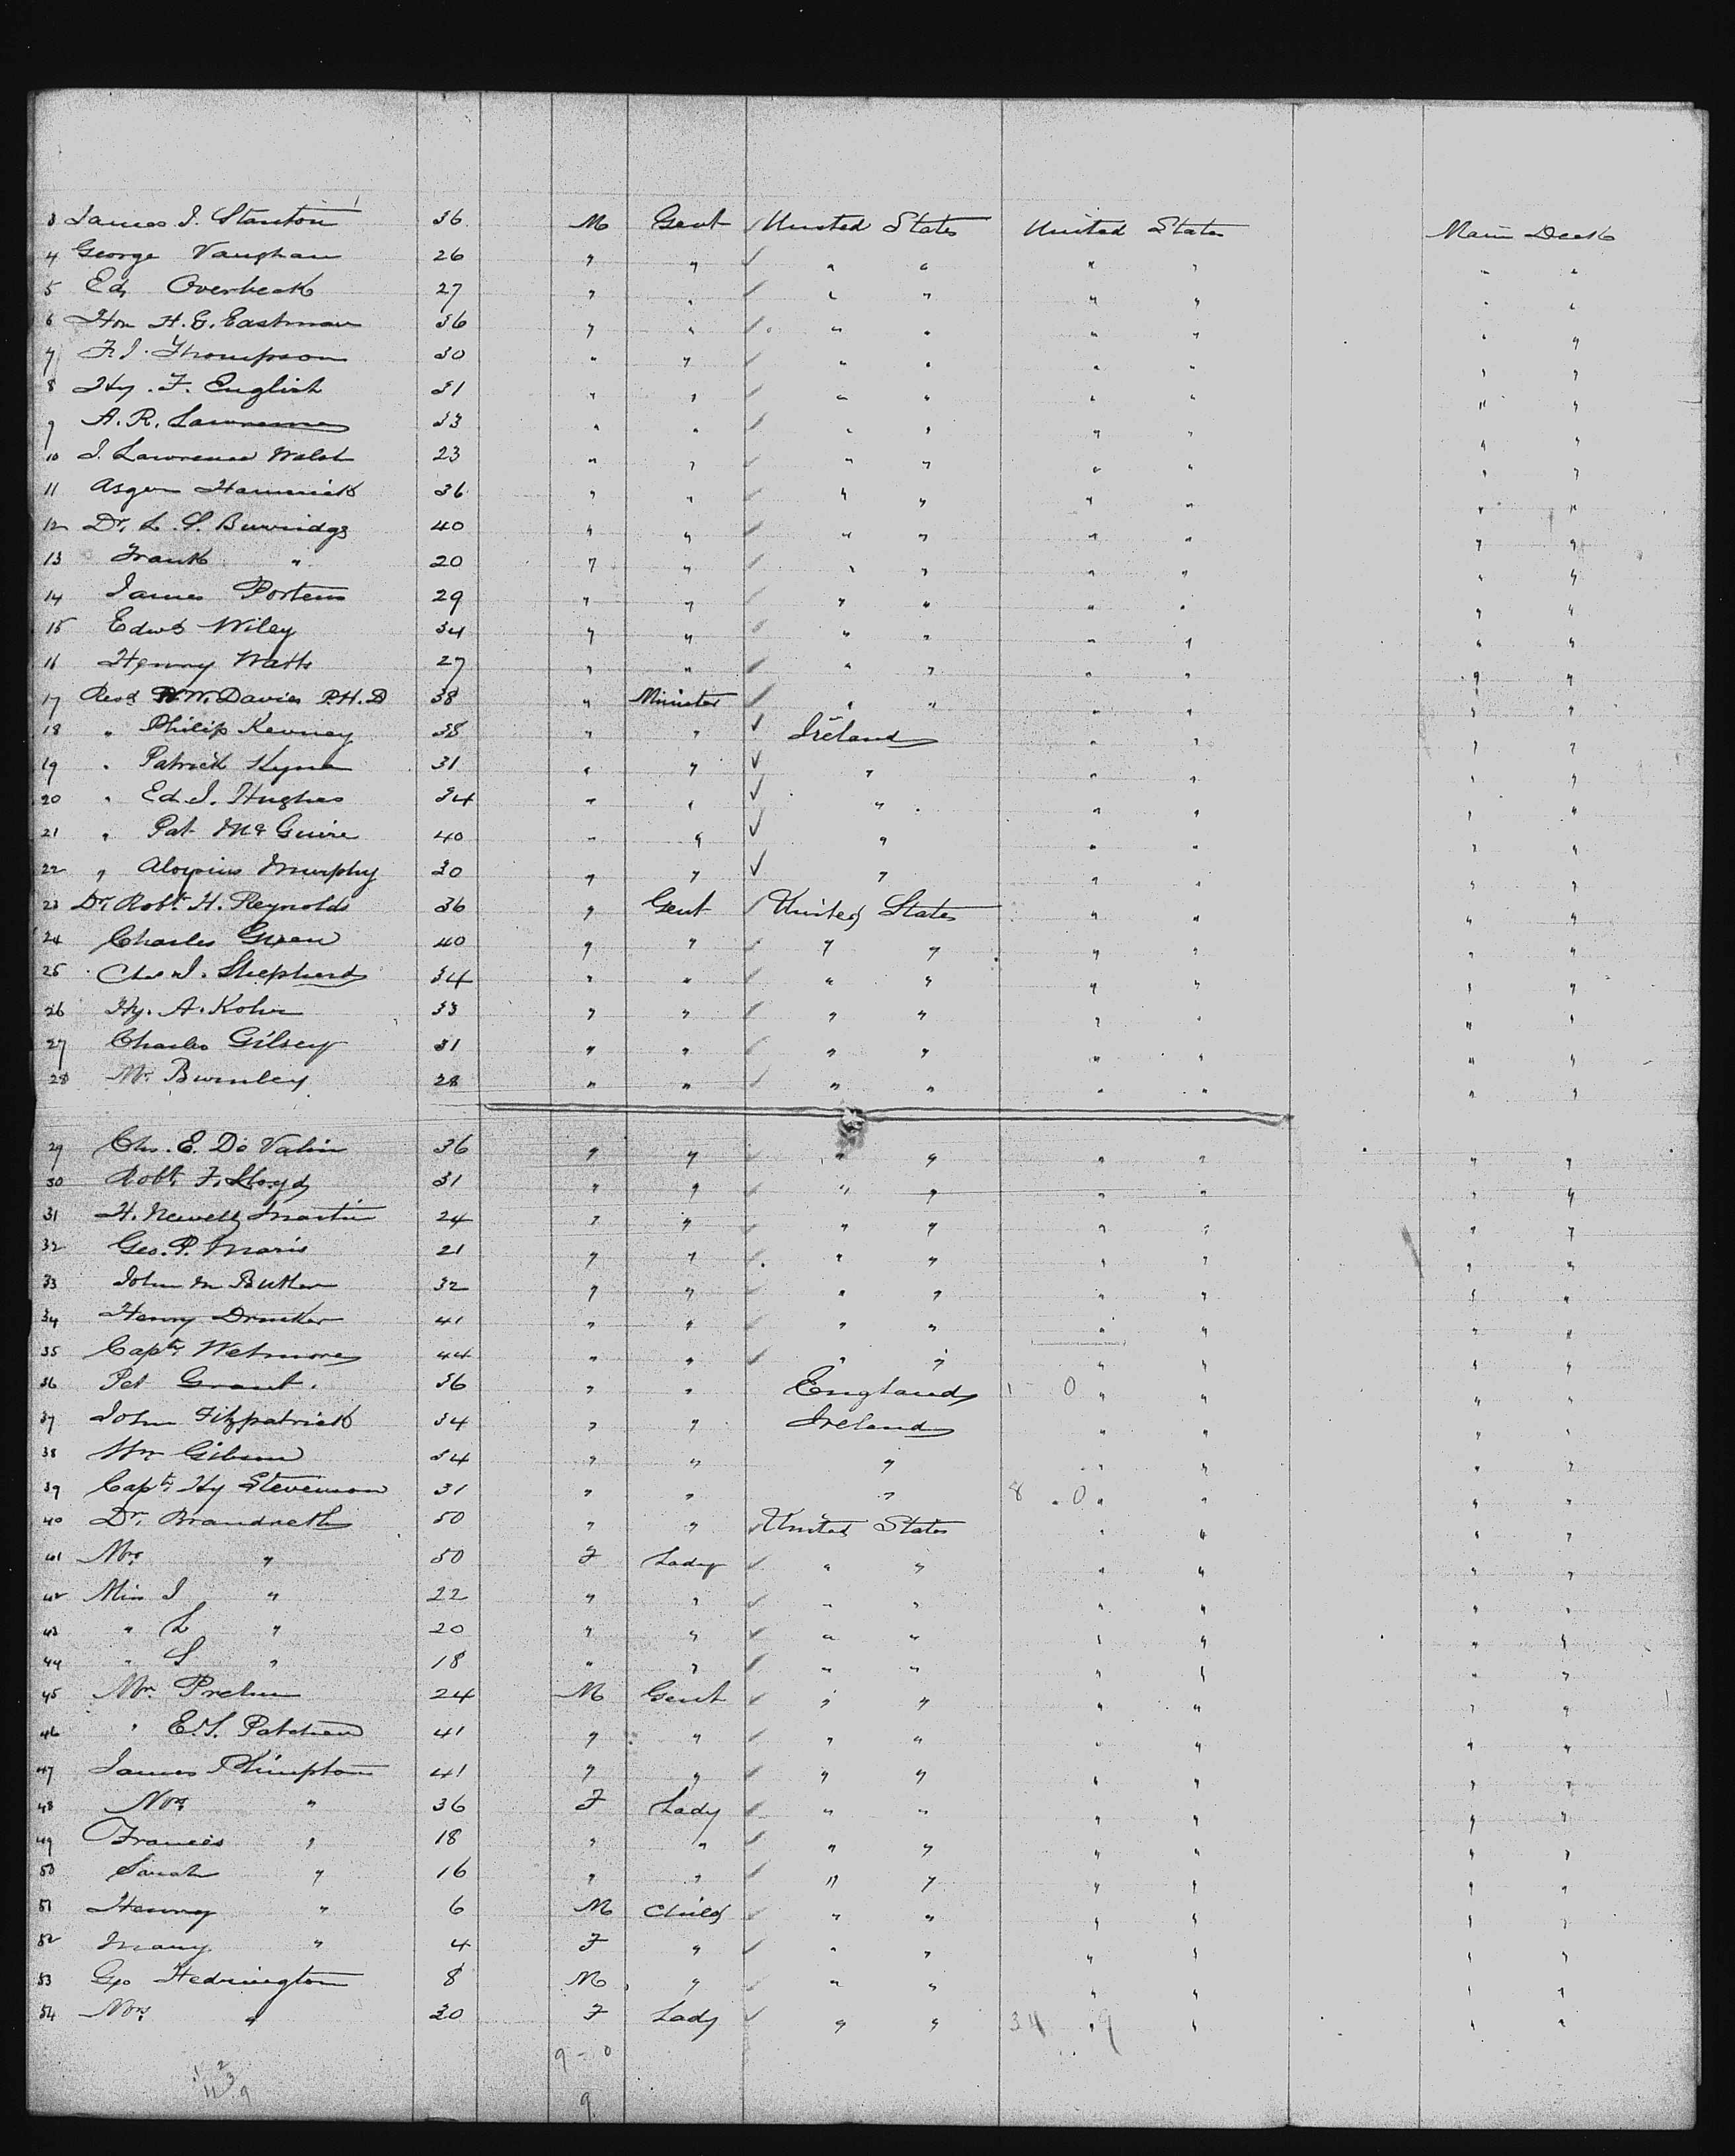 3 James J. Stanton 36 M Gent ✓ United States United States Main Deck
4 George Vaughan 26 " " ✓ " " " " " "
5 Ed Overbeck 27 " " ✓ " " " " " "
6 Hon H. G. Eastman 36 " " ✓ " " " " " "
7 F. J. Thompson 30 " " ✓ " " " " " "
8 Hy. F. English 31 " " ✓ " " " " " "
9 A. R. Lawrence 33 " " ✓ " " " " " "
10 J. Lawrence Walsh 23 " " ✓ " " " " " "
11 Asger Hammerick 36 " " ✓ " " " " " "
12 Dr. L. S. Burridge 40 " " ✓ " " " " " "
13 Frank " 20 " " ✓ " " " " " "
14 James Porteus 29 " " ✓ " " " " " "
15 Edwd Wiley 34 " " ✓ " " " " " "
16 Henry Watts 27 " " ✓ " " " " " "
17 Revd W. W. Davies P.H.D 38 " Minister ✓ " " " " " "
18 " Philip Kenney 38 " " ✓ Ireland " " " "
19 " Patrick Kyne 31 " " ✓ " " " " "
20 " Ed. J. Hughes 34 " " ✓ " " " " "
21 " Pat McGuire 40 " " ✓ " " " " "
22 " Aloysius Murphy 30 " " ✓ " " " " "
23 Dr. Robt. H. Reynolds 36 " Gent ✓ United States " " " "
24 Charles Green 40 " " ✓ " " " " " "
25 Chs J. Shepherd 34 " " ✓ " " " " " "
26 Hy. A. Kohn 33 " " ✓ " " " " " "
27 Charles Gilsey 31 " " ✓ " " " " " "
28 Mr. Burnley 28 " " ✓ " " " " " "
29 Chs. E. De Valin 36 " " ✓ " " " " " "
30 Robt. F. Lloyd 31 " " ✓ " " " " " "
31 H. Newell Martin 24 " " ✓ " " " " " "
32 Geo. P. Maris 21 " " ✓ " " " " " "
33 John M Butler 32 " " ✓ " " " " " "
34 Henry Drinker 41 " " ✓ " " " " " "
35 Capt. Wetmore 44 " " ✓ " " " " " "
36 Pet Grant. 36 " " England 1 - 0 " " " "
37 John Fitzpatrick 34 " " Ireland " " " "
38 Wm Gibson 34 " " " " " " "
39 Capt. Hy Stevenson 31 " " " 8 . 0 " " " "
40 Dr. Brandreth 50 " " ✓ United States " " " "
41 Mrs " 50 F Lady ✓ " " " " " "
42 Miss J " 22 " " ✓ " " " " " "
43 " L " 20 " " ✓ " " " " " "
44 " S " 18 " " ✓ " " " " " "
45 Mr. Prehn 24 M Gent ✓ " " " " " "
46 " E. S. Patchen 41 " " ✓ " " " " " "
47 James Plimpton 41 " " ✓ " " " " " "
48 Mrs " 36 F Lady ✓ " " " " " "
49 Frances " 18 " " ✓ " " " " " "
50 Sarah " 16 " " ✓ " " " " " "
51 Henry " 6 M Child ✓ " " " " " "
52 Mary " 4 F " ✓ " " " " " "
53 Geo Hedrington 8 M " ✓ " " " " " "
54 Mrs " 30 F Lady ✓ " " 34 9 " " " "
9 - 0
9